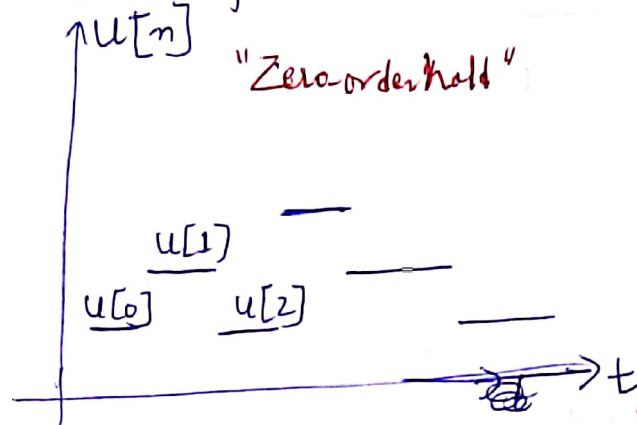 u[n]
"Zero-order hold"
u[1]
u[0]
u[2]
t